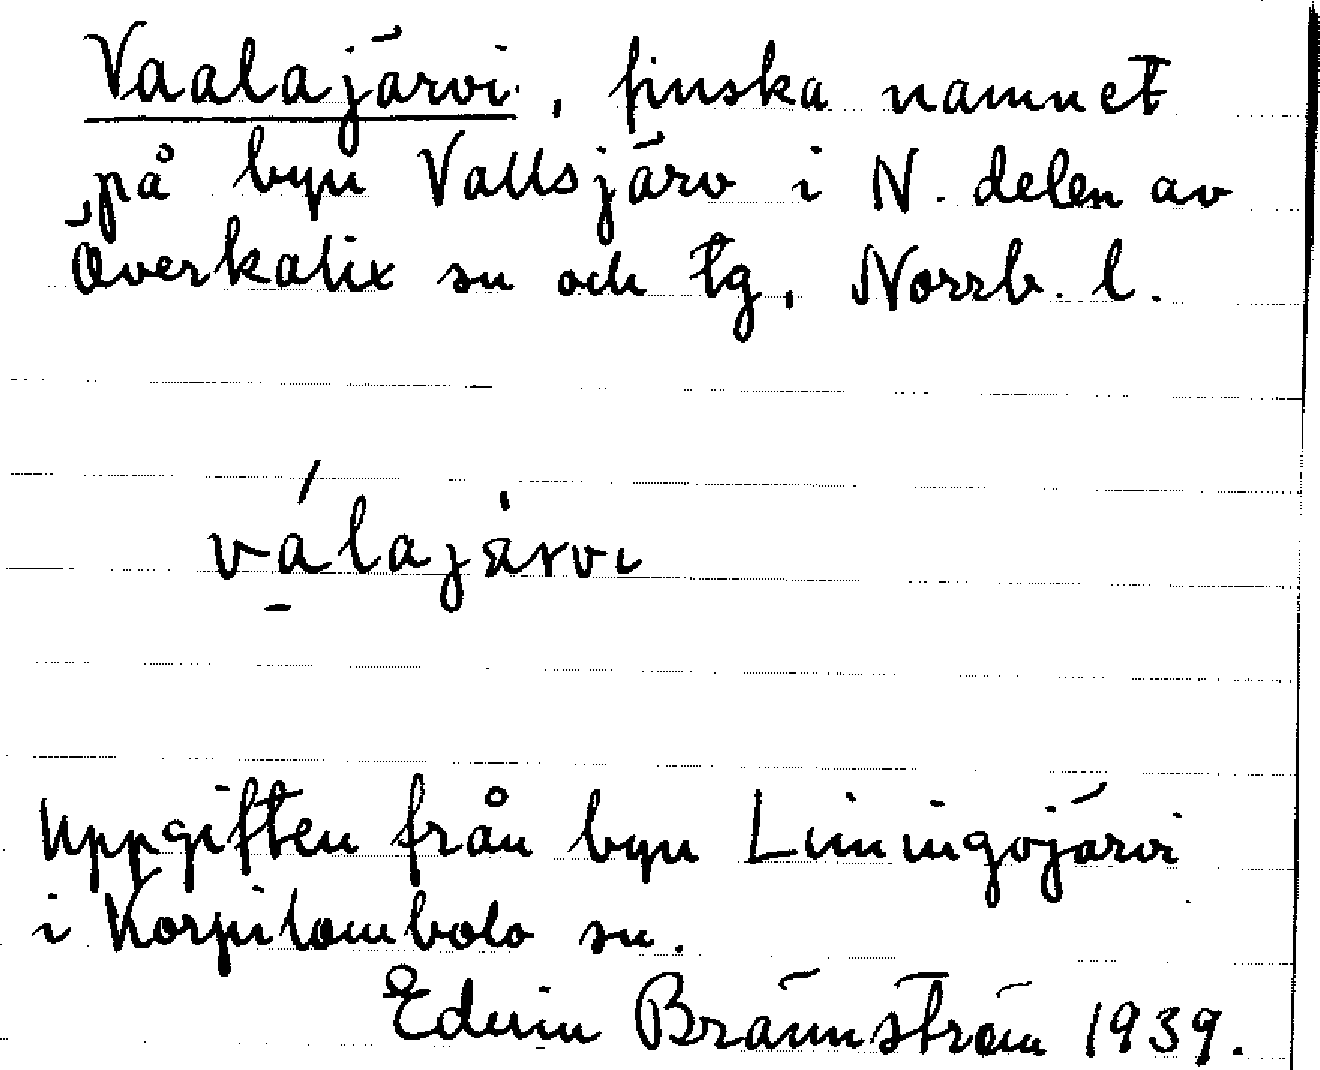 Vaalajärvi, finska namnet
på byn Vallsjärv i N. delen av
Överkalix sn och tg, Norrb. l.
vá̱lajärvi
Uppgiften från byn Limingojärvi
i Korpilombolo sn.
Edvin Brännström 1939.